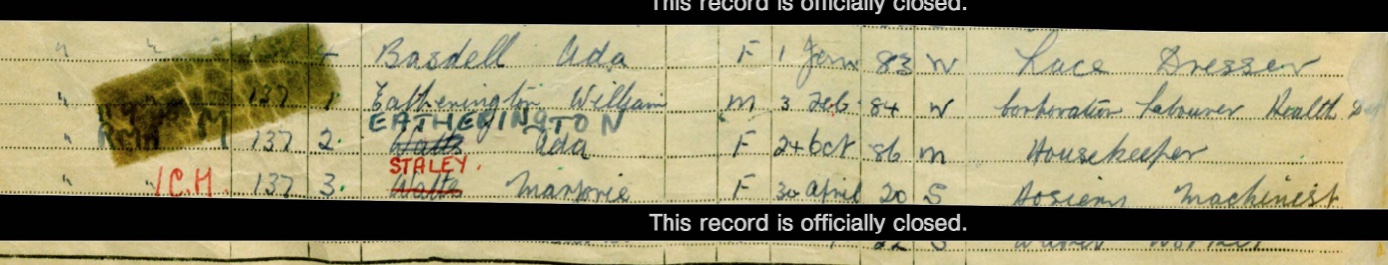 This record is officially closed.
" " 4 Basdell Ada F 1 Jan 83 W Lace Dresser
" 137 1 Eatherington William M 3 Feb 84 W Corporation Labourer Health
EATHERINGTON
" M 137 2. Watts Ada F 24 Oct 86 M Housekeeper
STALEY.
" " /C.H. 137 3. Watts Marjorie F 30 April 20 S Hosiery Machinist
This record is officially closed.
22 S